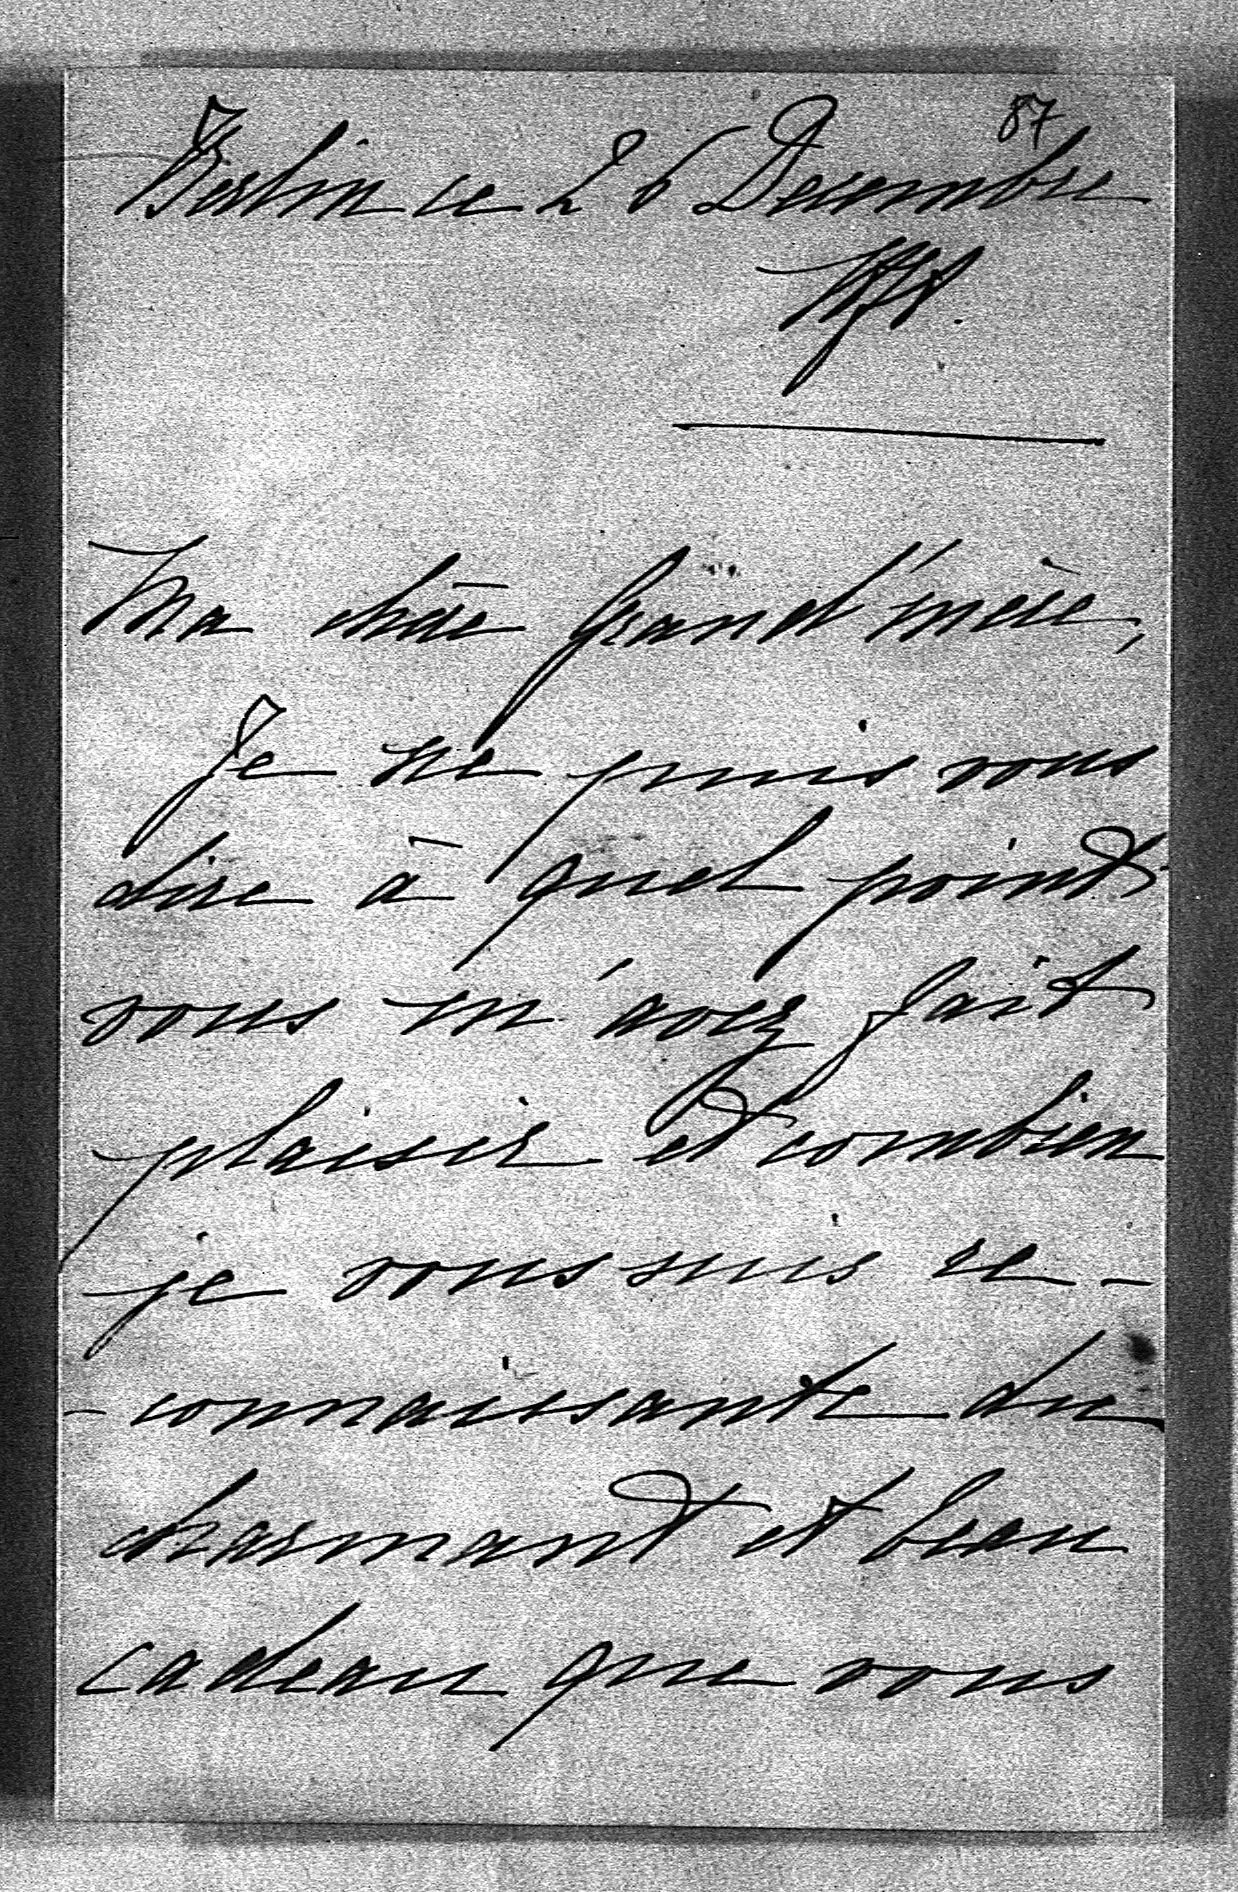 87
Berlin ce 26 Decembre
Ma chère Grand'mère,
Je ne puis vous
dire à quel point
vous m'avez fait
plaisir et combien
je vous suis re-
-connaissante du
charmant et beau
cadeau que vous